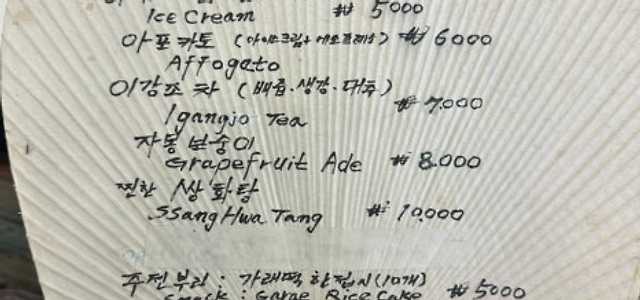 Ice Cream ₩ 5000
아포카토 (아이스크림+에소프레소) ₩ 6000
Affogato
이강조 차 (배즙·생강·대추) ₩ 7,000
Igangjo Tea
자몽 보숭이
Grapefruit Ade ₩ 8.000
찐한 쌍화탕
SSangHwa Tang ₩ 10,000
주전부리 : 가래떡 한접시(10개)
Snack : Garae Rice Cake ₩ 5000